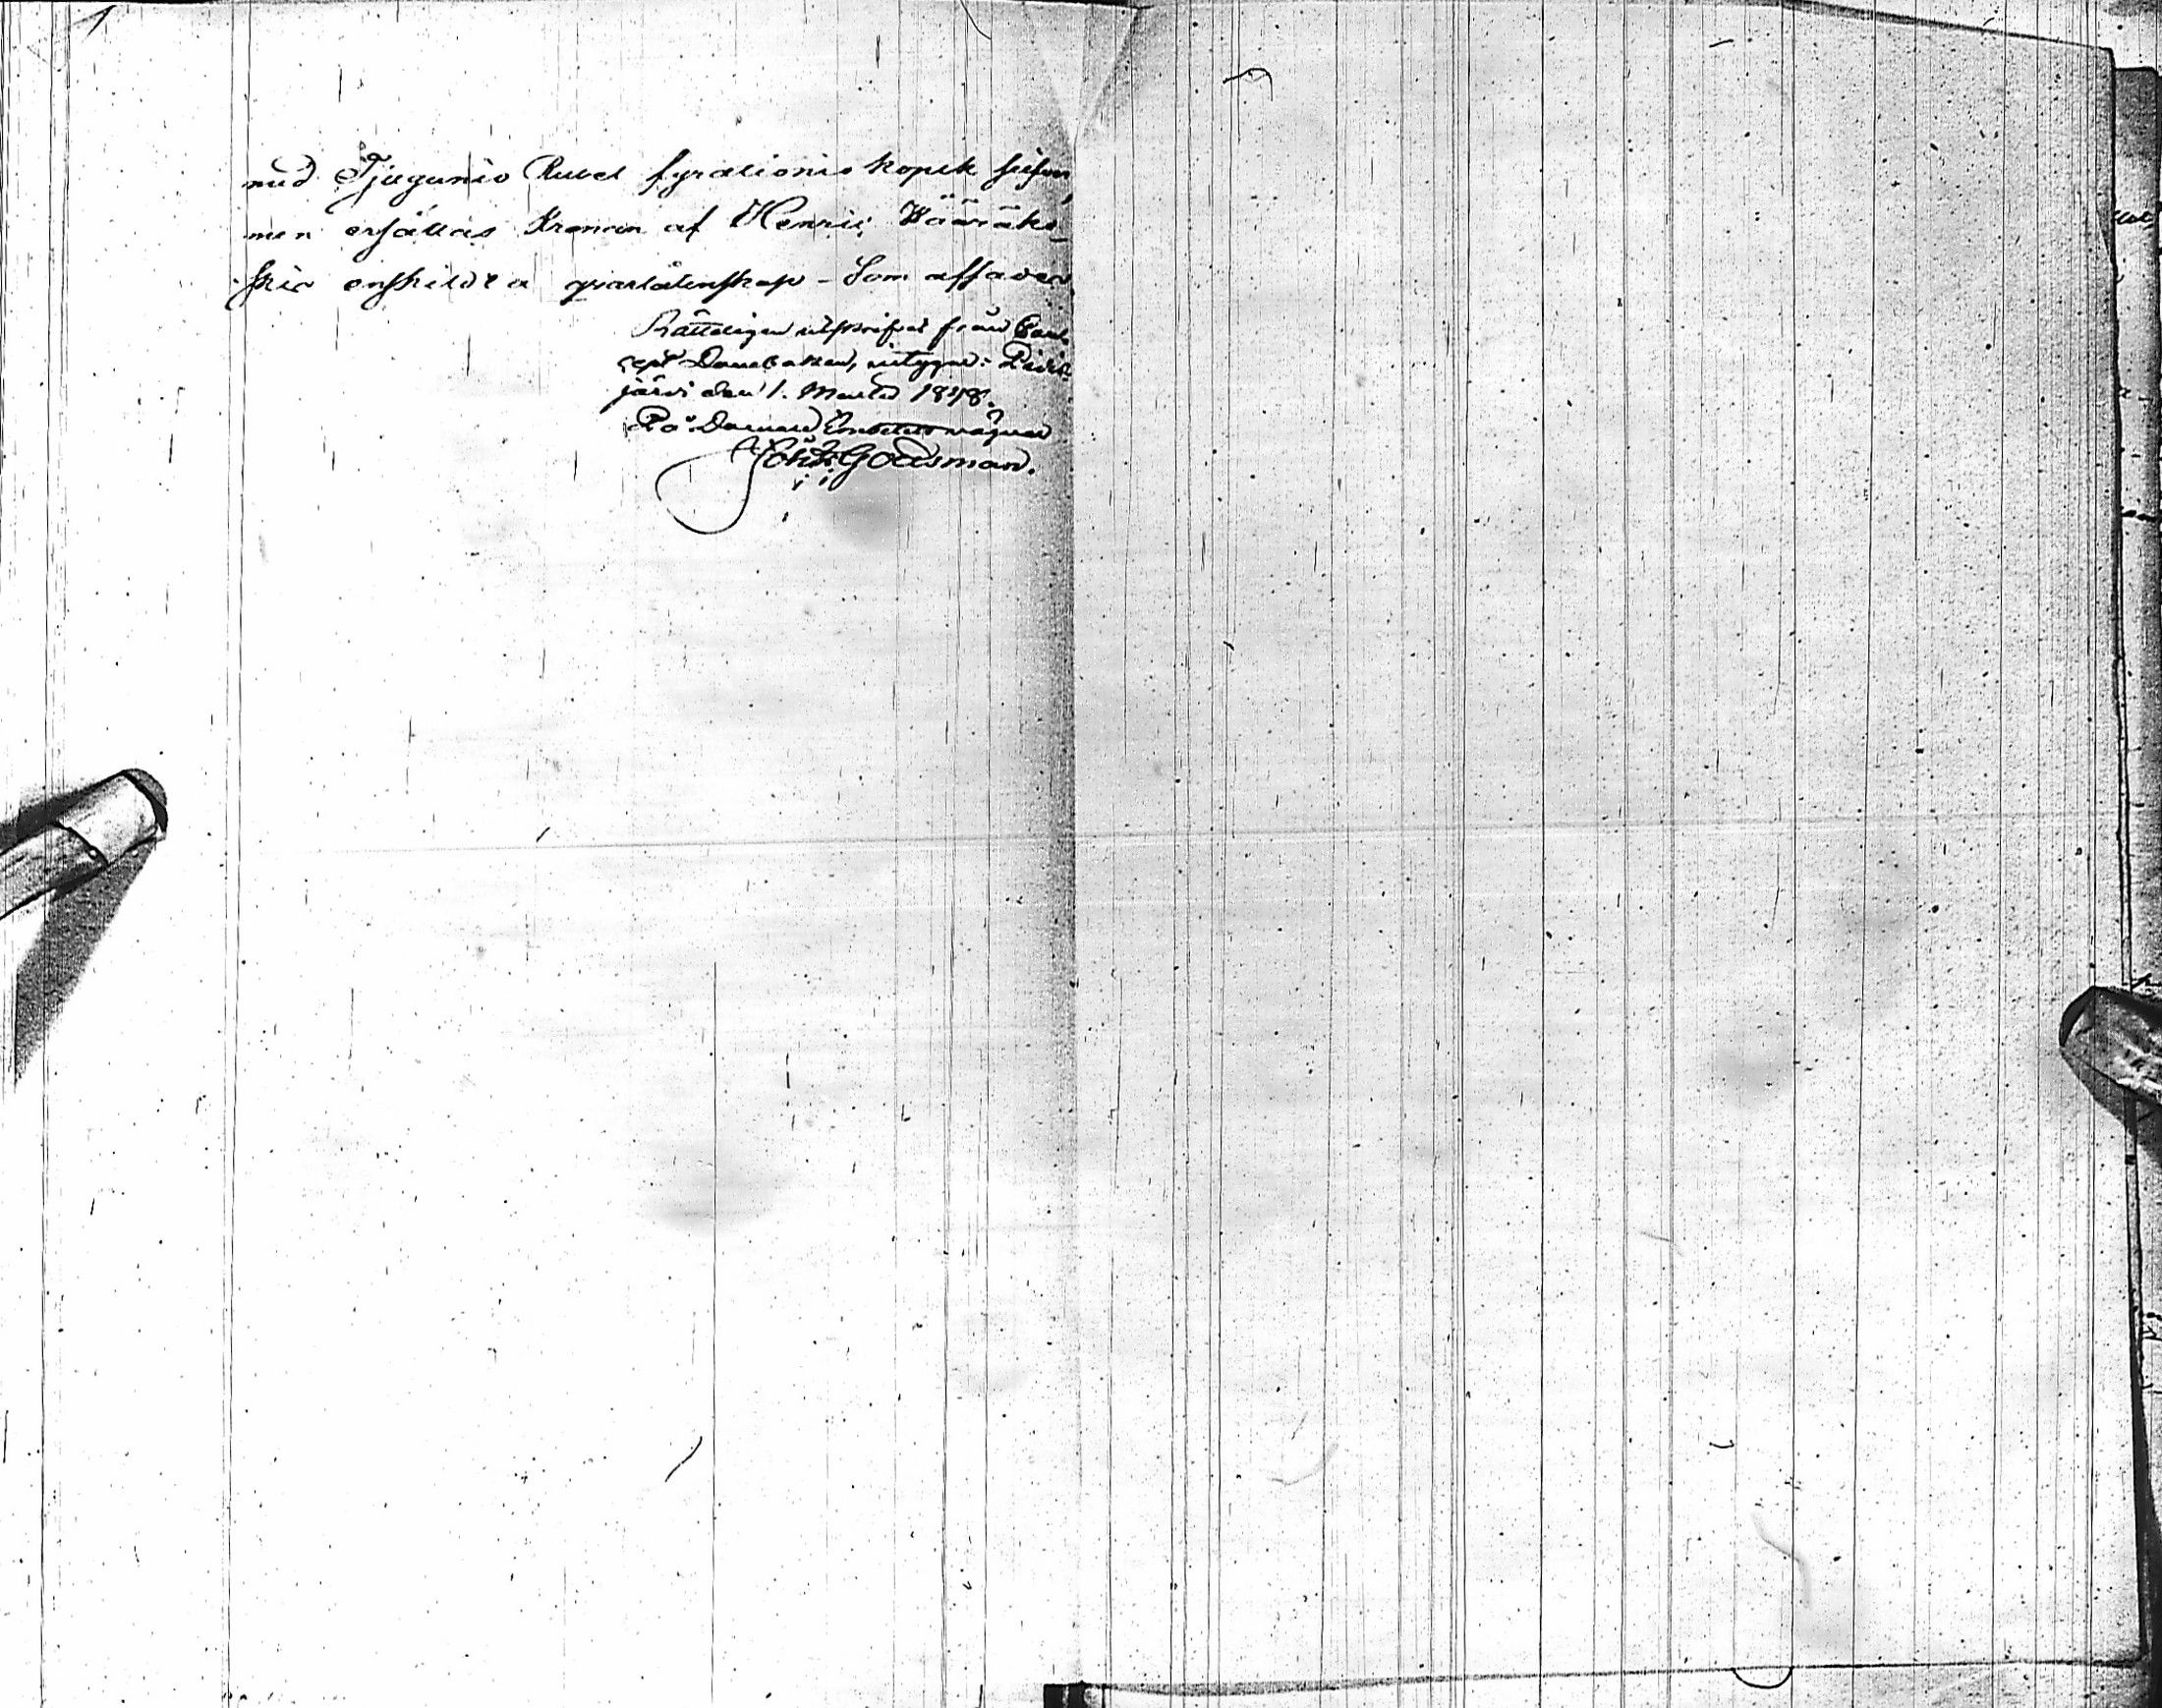 med Tjugunio Rubel fyrationio kopek silfver,
men ersättas Kronan af Henric Wääräko-
skis enskildta qvarlåtenskap - Som affades.
Rätteligen utskrifvet från Con-
cept Domboken, intygar: Pidis-
järvi den 1. Martii 1848.
På Domare Embetets vägnar
Joh: Godsman.